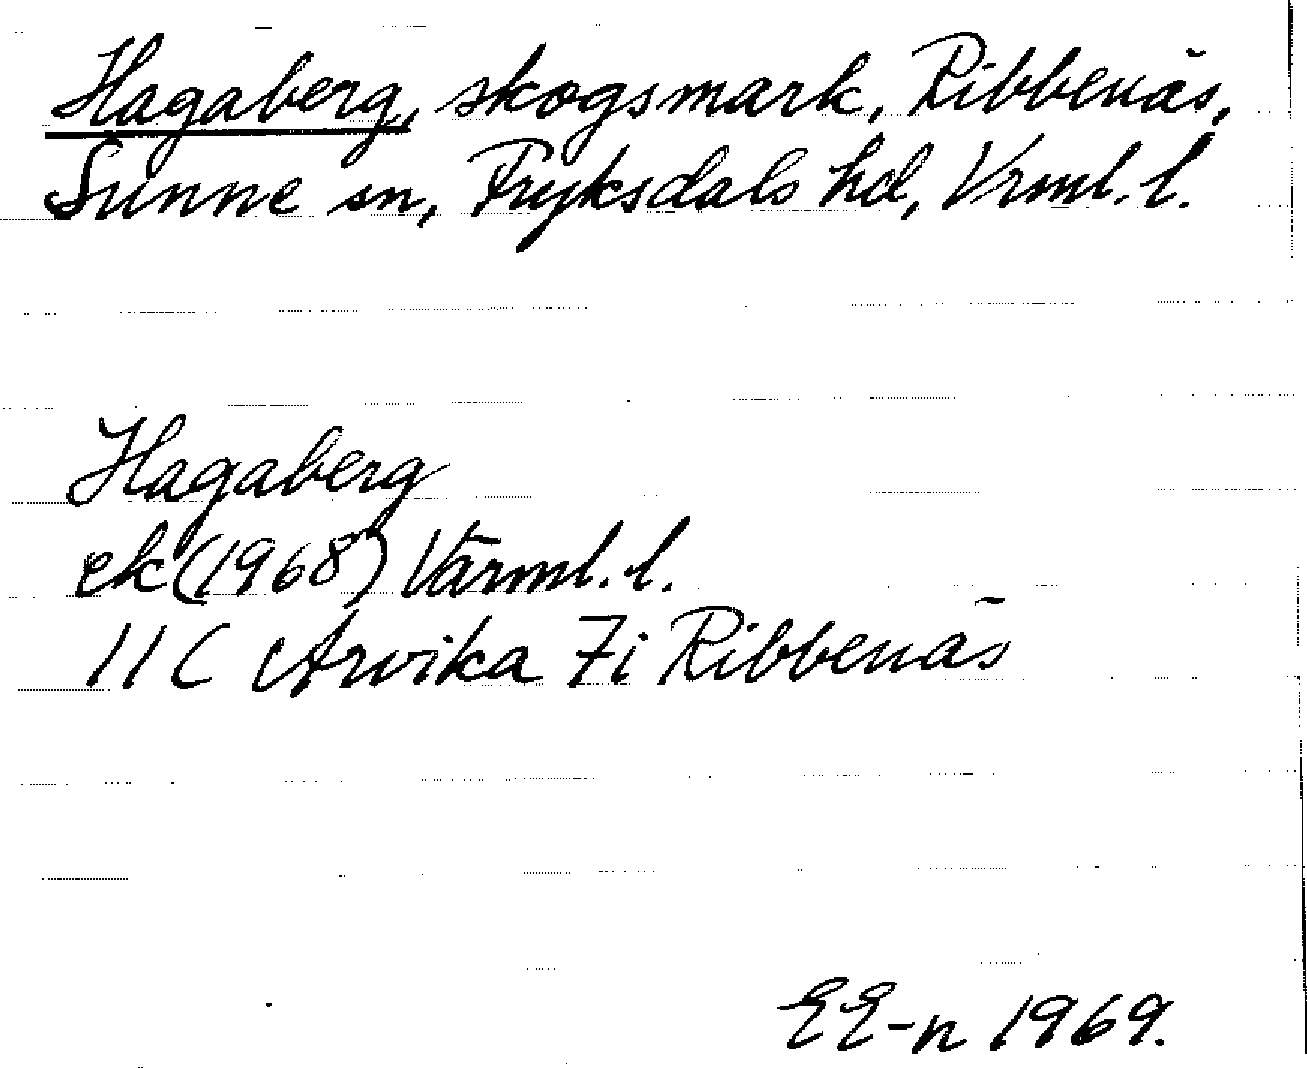 Hagaberg, skogsmark, Ribbenäs,
Sunne sn, Fryksdals hd, Vrml. l.
Hagaberg
ek (1968) Värml. l.
11 C Arvika 7i Ribbenäs
EE-n 1969.